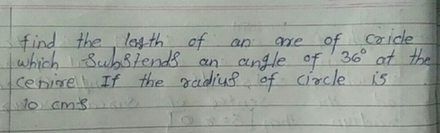 find the length of an are of cricle
which Substends an angle of 36° at the
cenire If the radius of circle is
10 cms